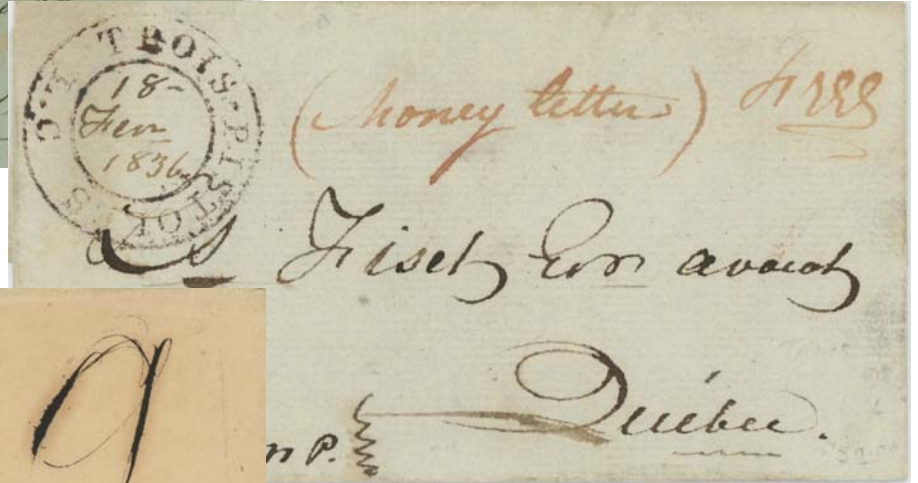 TROIS-PISTOLES
18-
Fevr
1836
(Money letter) Free
Ls Fiset Ecr avocat
Québec.
n P.
9